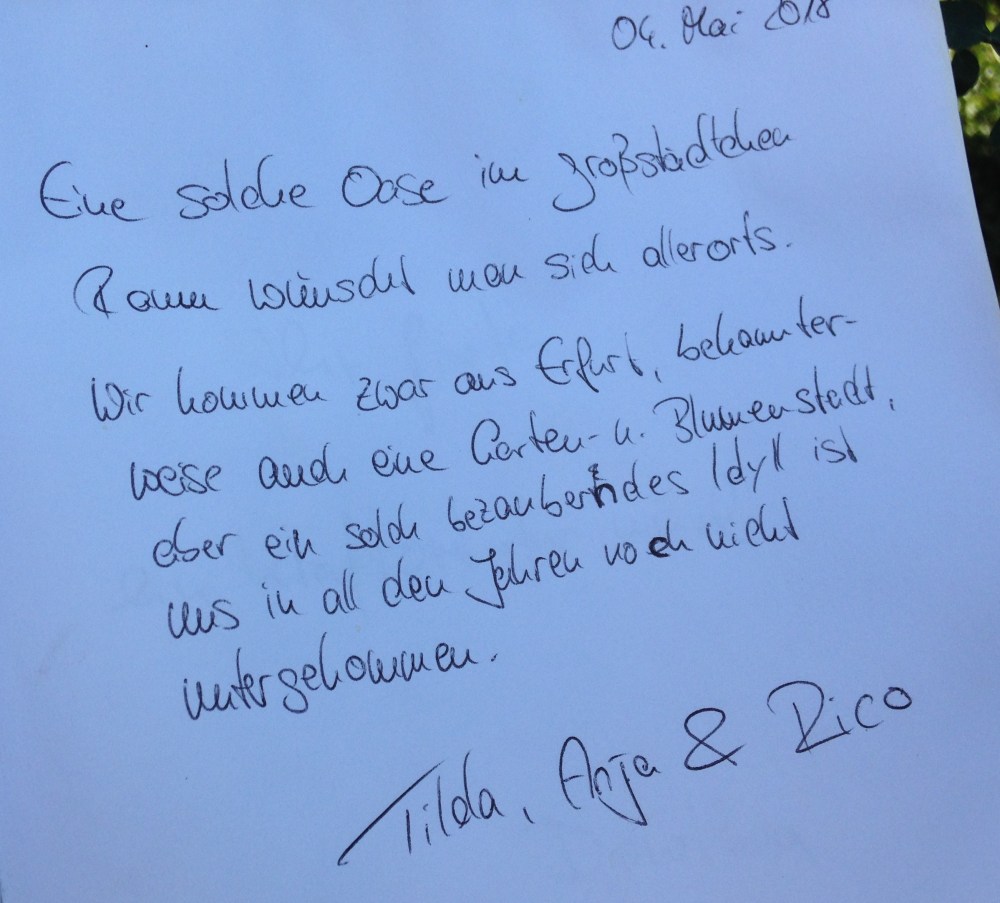 04. Mai 2018
Eine solche Oase im großstädtchen
Raum wünscht man sich allerorts.
Wir kommen zwar aus Erfurt, bekannter-
weise auch eine Garten- u. Blumenstadt,
aber ein solch bezauberndes Idyll ist
uns in all den Jahren noch nicht
untergekommen.
Tilda, Anja & Rico